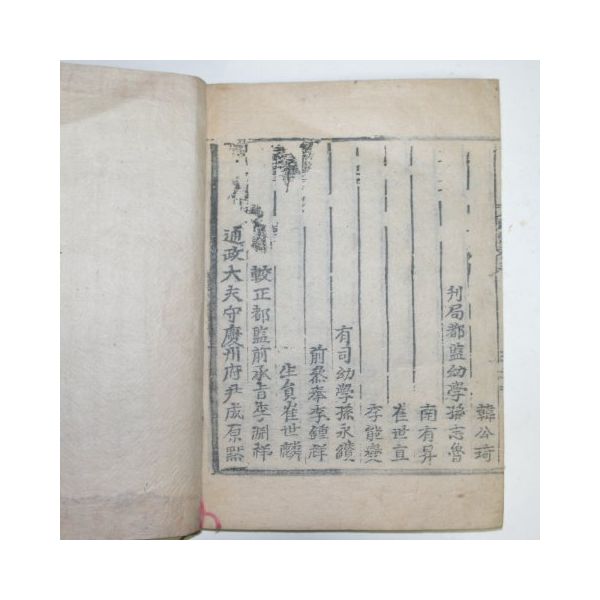 韓公琦
刊局都監幼學孫志魯
南有昇
崔世直
李能燮
有司幼學孫永鐀
前參奉李鍾祥
生員崔世麟
較正都監前承旨李淵祥
通政大夫守慶州府尹成原默